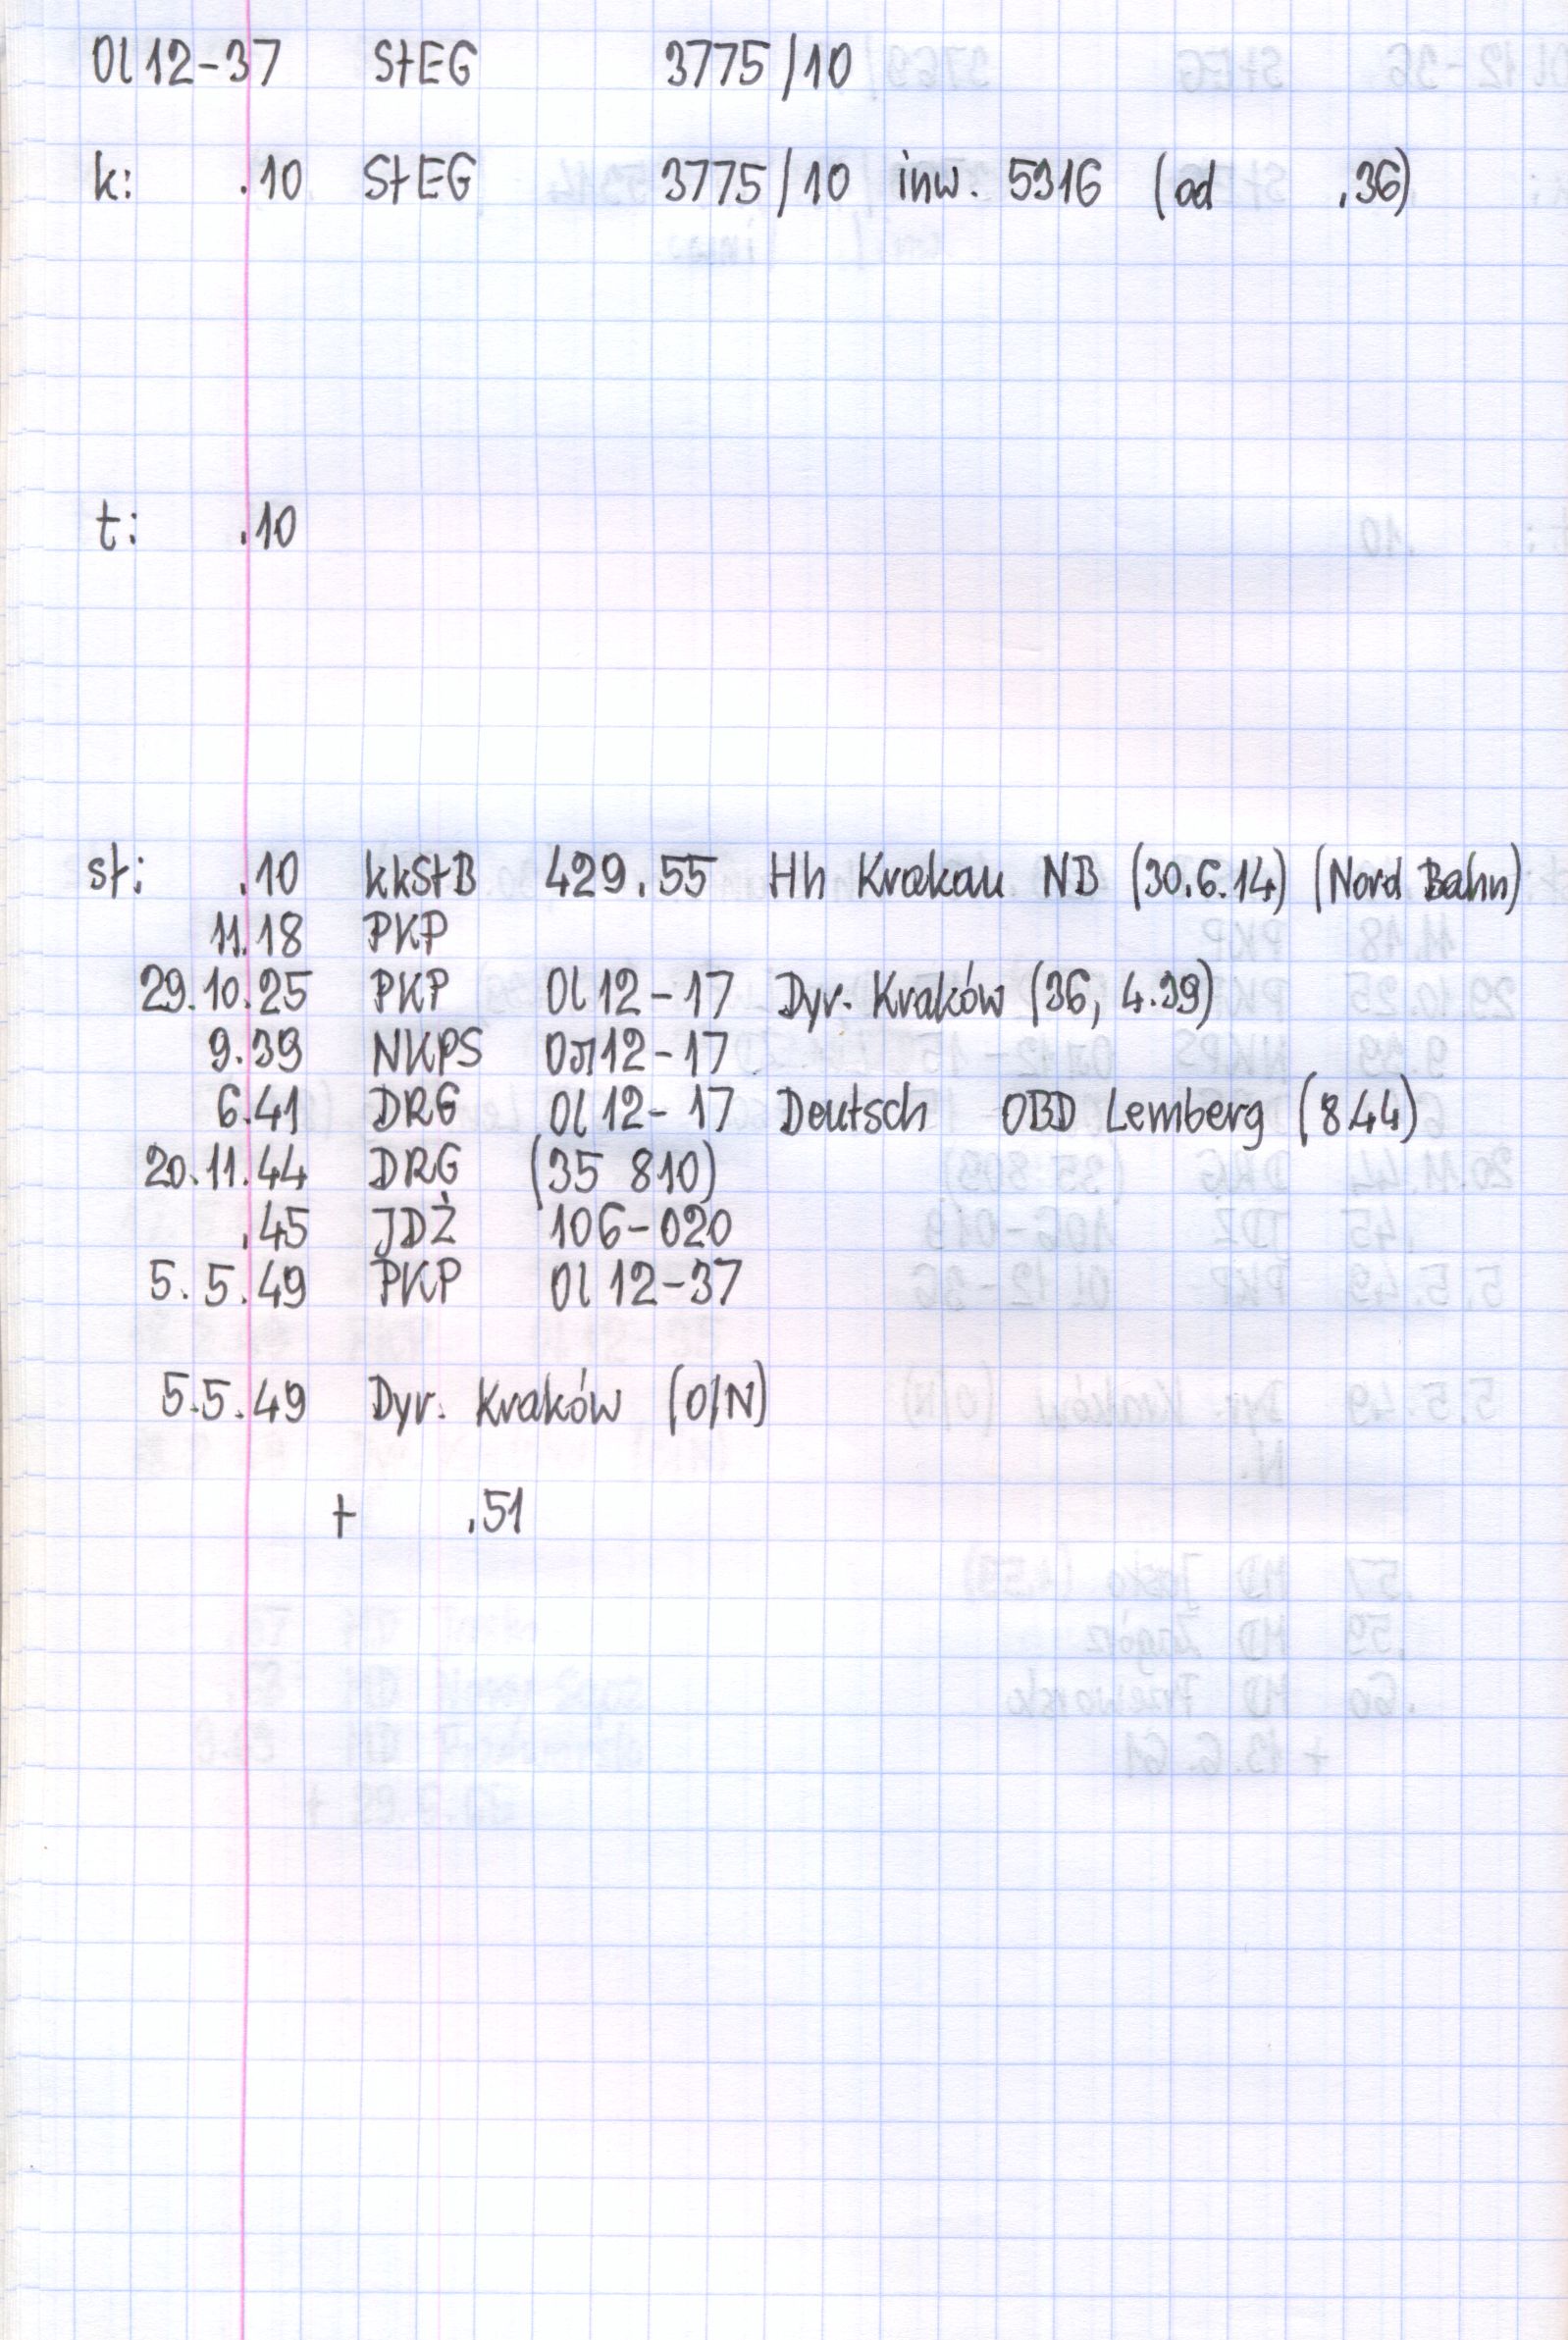 Ol12-37 StEG 3775/10
k: .10 StEG 3775/10 inw. 5316 (od .36)
t: .10
st: .10 kkStB 429.55 Hh Krakau NB (30.6.14) (Nord Bahn)
11.18 PKP
29.10.25 PKP Ol12-17 Dyr. Kraków (36, 4.39)
9.39 NKPS Ол12-17
6.41 DRG Ol12-17 Deutsch OBD Lemberg (8.44)
20.11.44 DRG (35 810)
.45 JDŻ 106-020
5.5.49 PKP Ol12-37
5.5.49 Dyr. Kraków (O/N)
+ .51